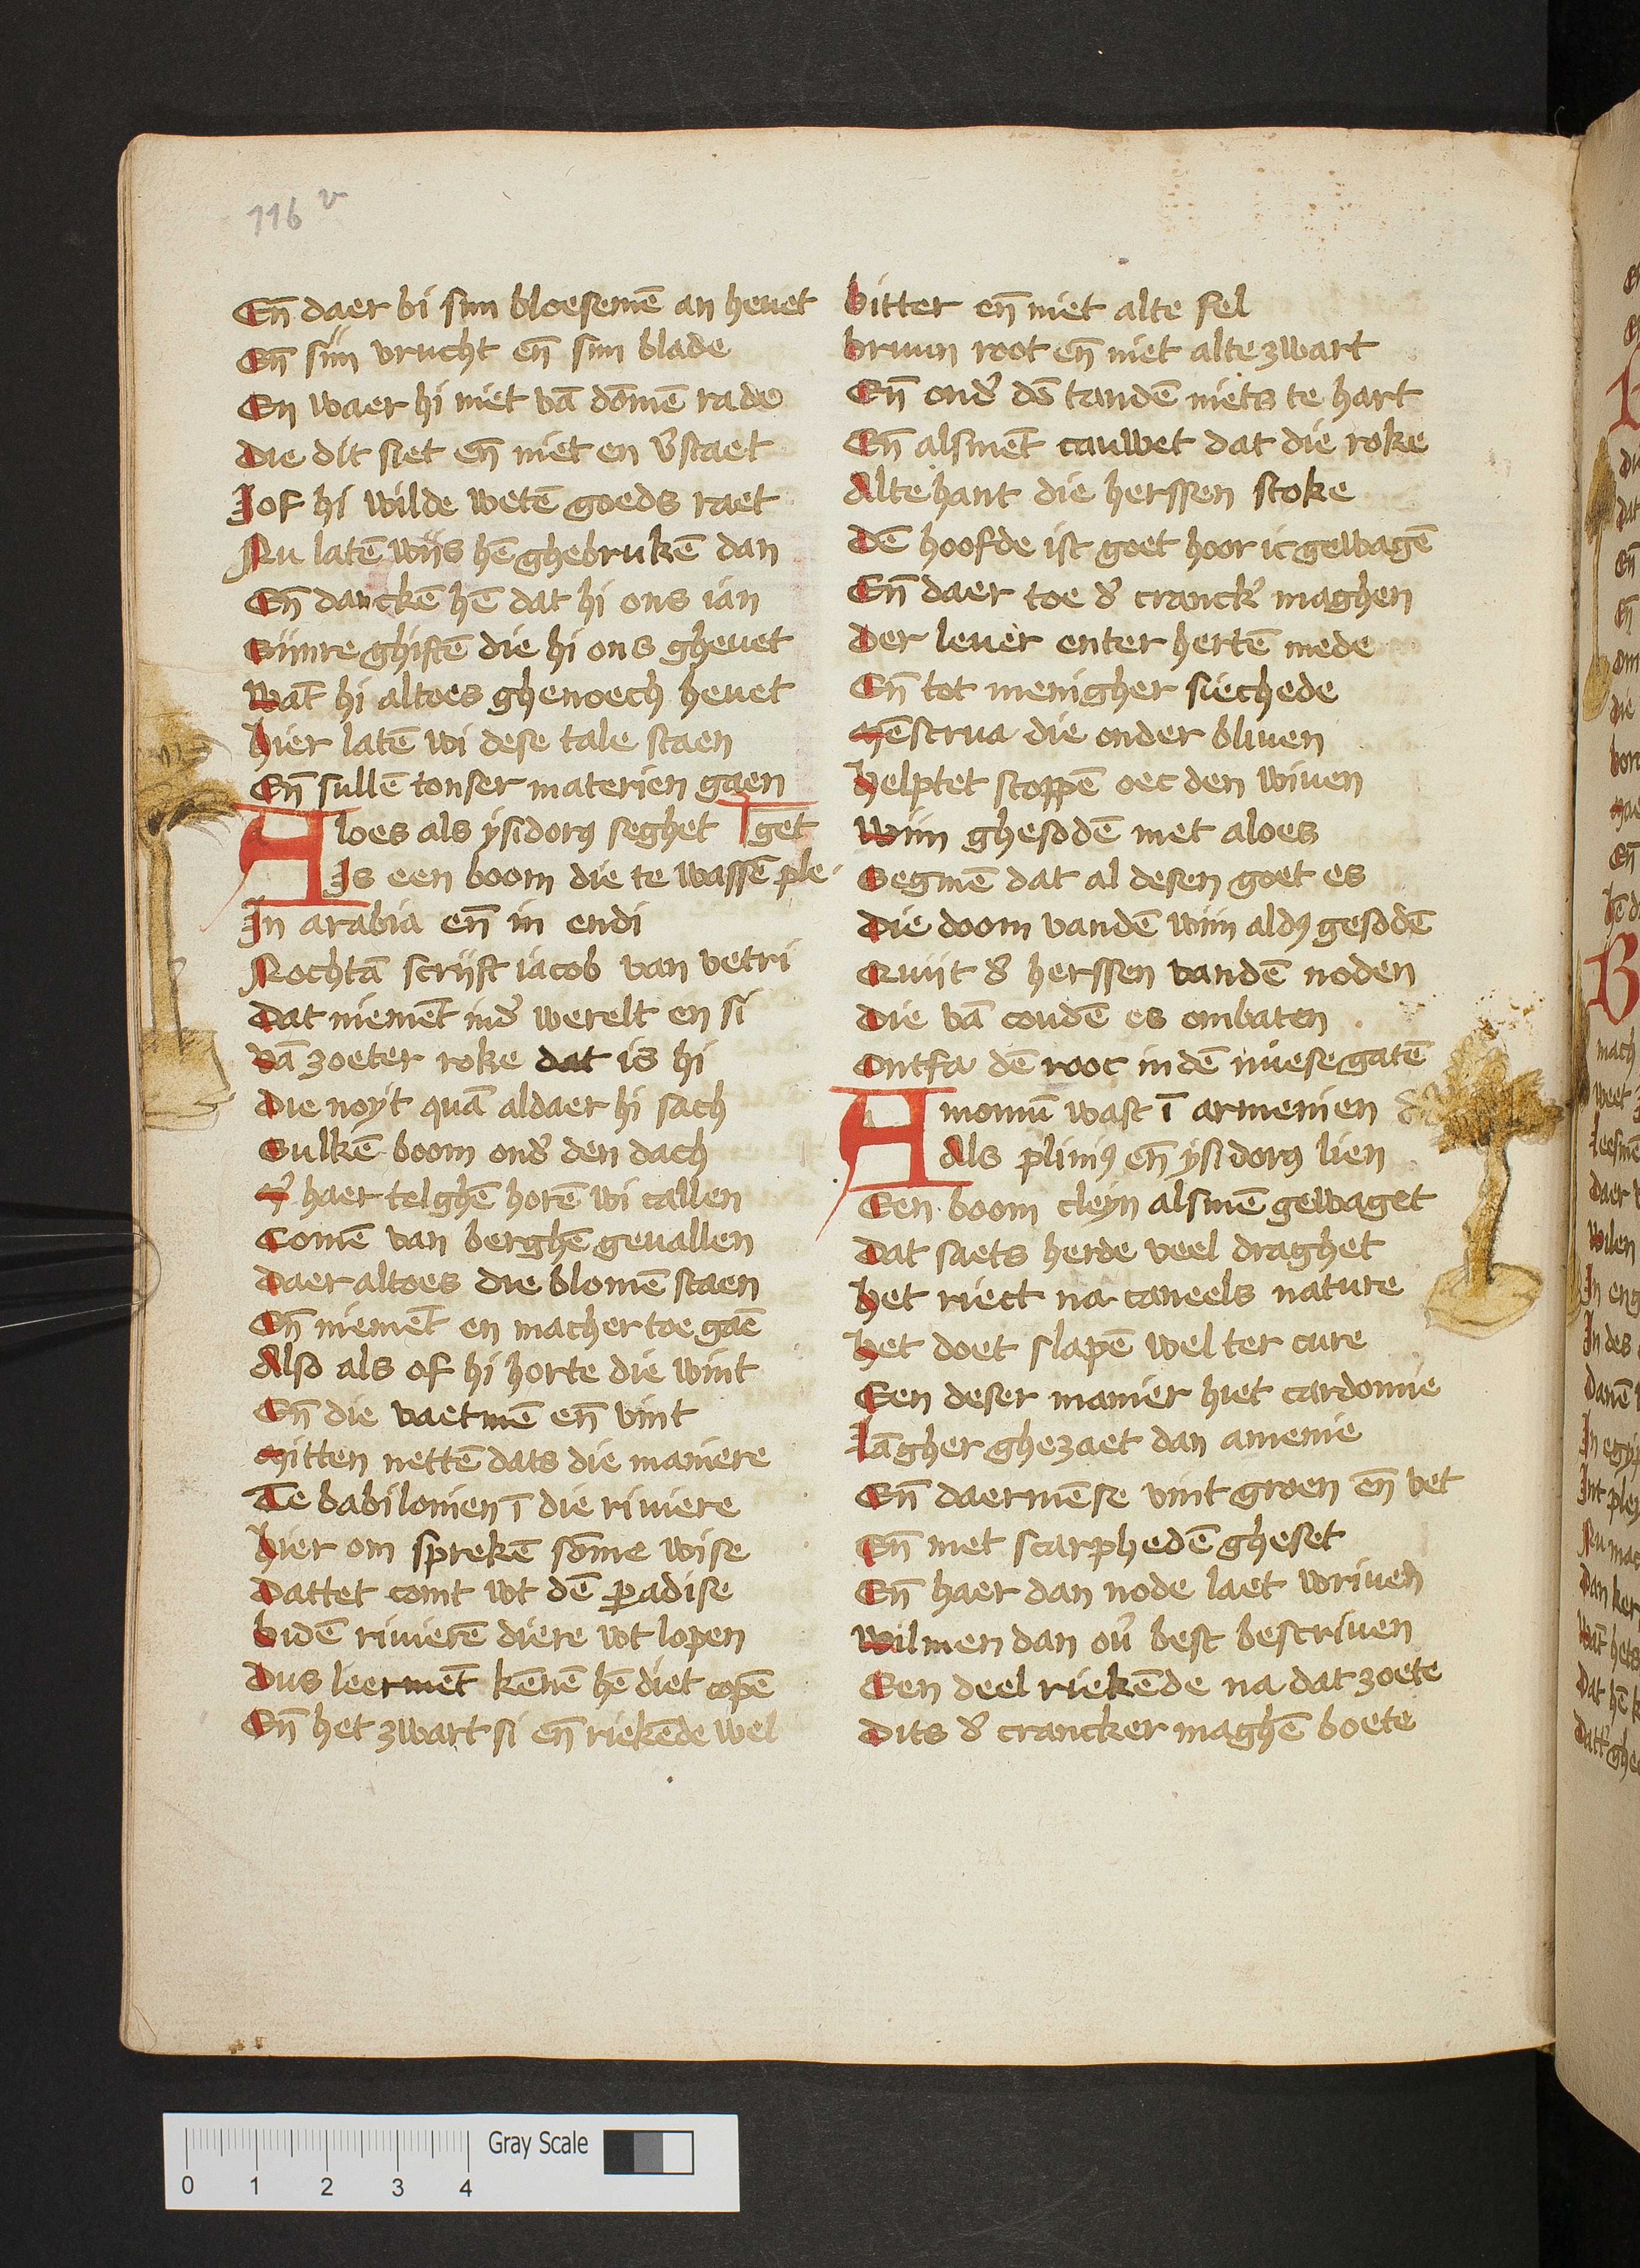 116 v
Eñ daer bi siin bloesemē an heuet
Eñ siin vrucht eñ siin blade
En waer hi niet vā dōmē rade
Die dit siet eñ niet en v̓staet
Jof hi wilde wetē goeds raet
Nu latē wijs hē ghebrukē dan
Eñ danckē hē dat hi ons ian
Siinre ghiftē die hi ons gheuet
Wāt hi altoes ghenoech heuet
Hier latē wi dese tale staen
Eñ sullē tonser materien gaen
Aloes als ysidorꝰ seghet get
Is een boom die te wassē ple
In arabia eñ in endi
Nochtā scrijft iacob van vetri
Dat niemēt ind̓ werelt en si
Vā zoeter roke dat is hi
Die noyt quā aldaer hi sach
Sulkē boom ond̓ den dach
M̓ haer telghē horē wi callen
Comē van berghē geuallen
Daer altoes die blomē staen
Eñ niemēt en macher toe gaē
Also als of hi horte die wint
Eñ die vaetmē eñ vint
Mitten nettē dats die maniere
Te babilonien ī die riuiere
Hier om sprekē sōme wise
Dattet comt wt dē ꝑadise
Bidē riuierē diere wt lopen
Dus leermēt kēnē hē diet copē
Eñ het zwart si eñ riekēde wel
Bitter eñ niet alte fel
Bruun root eñ niet alte zwart
Eñ ond̓ dē tandē niets te hart
Eñ alsmēt cauwet dat die roke
Altehant die herssen stoke
Dē hoofde ist goet hoor ic gewagē
Eñ daer toe d̓ cranck̓ maghen
Der leuer enter hertē mede
Eñ tot menigher siechede
Mēstrua die onder bliuen
Helptet stoppē oec den wiuen
Wiin ghesodē met aloes
Segmē dat al desen goet es
Die doom vandē wiin aldꝰ gesodē
Quijt d̓ herssen vandē noden
Die vā coudē es ombaten
Ontfa dē rooc in dē nuesegatē
Amomū wast ī armenien
Als pliniꝰ eñ ysidorꝰ lien
Een boom cleyn alsmē gewaget
Dat saets herde veel draghet
Het riect na caneels nature
Het doet slapē wel ter cure
Een deser manier hiet cardomie
Lāgher ghezaet dan amenie
Eñ daermēse vint groen eñ vet
Eñ met scarphedē gheset
Eñ haer dan node laet wriuen
Wilmen dan ou̓ best bescriuen
Een deel riekēde na dat zoete
Dits d̓ crancker maghē boete
Gray Scale
0 1 2 3 4